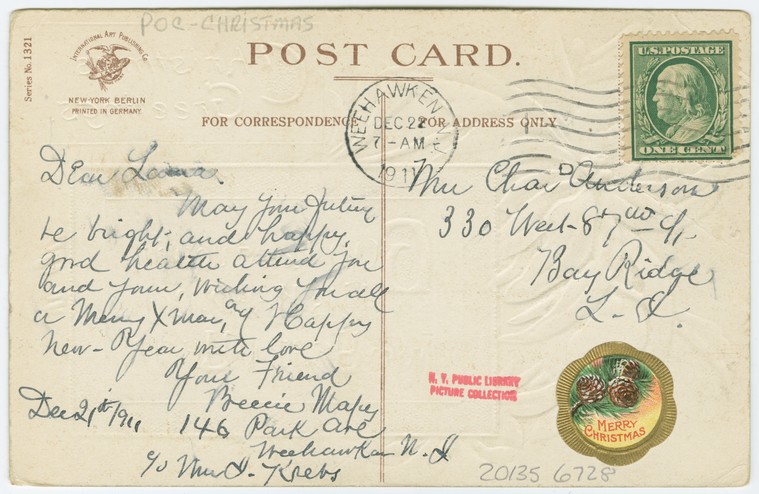 POC-CHRISTMAS
Series No. 1321
INTERNATIONAL ART PUBLISHING CO.
NEW-YORK BERLIN
PRINTED IN GERMANY
POST CARD.
FOR CORRESPONDENCE
FOR ADDRESS ONLY
WEEHAWKEN N.J.
DEC 22
7-AM
1911
U.S. POSTAGE
ONE CENT
Dear
May your future
be bright, and happy,
good health attend you
and yours, wishing you all
a Merry Xmas, and Happy
New-Year, with love
Your Friend
Beccie Mapes
Dec 21st 1911
146 Park Ave
Weehawken N.J
c/o Mrs J. Krebs
Mrs Chas D Anderson
330 West-87
Bay Ridge
L-I.
N. Y. PUBLIC LIBRARY
PICTURE COLLECTION
MERRY
CHRISTMAS
20135 6728